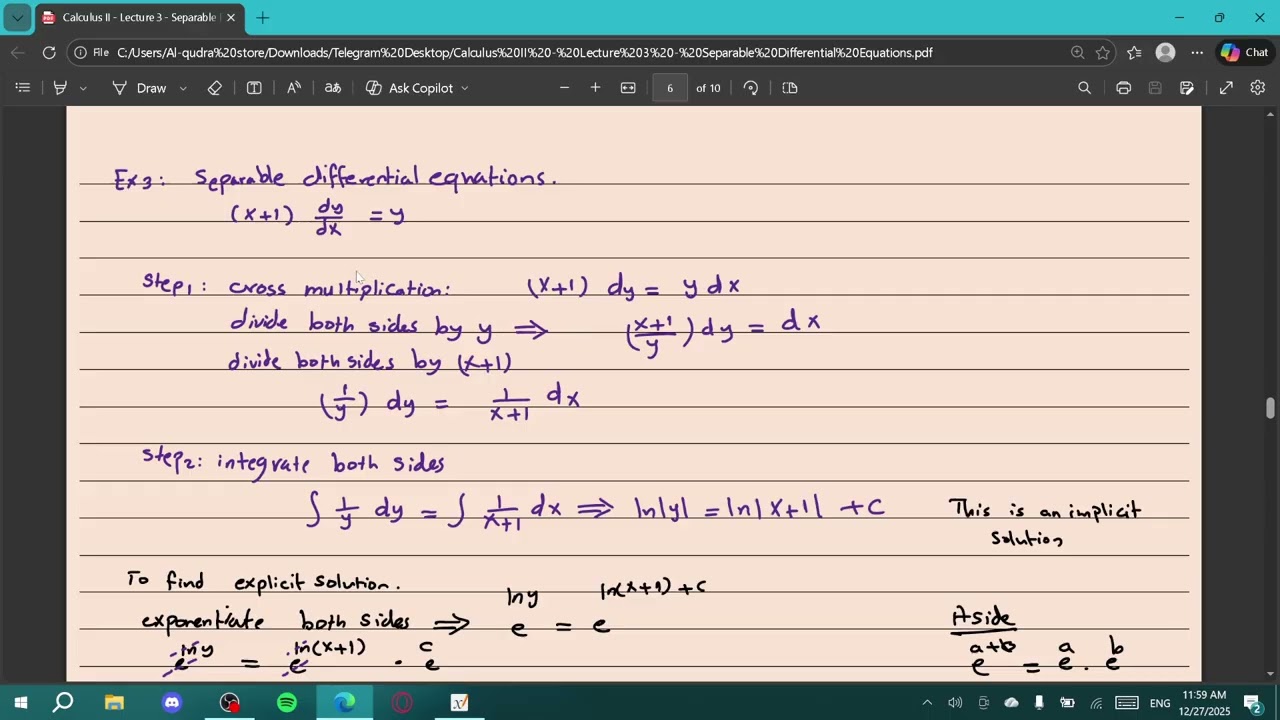 Calculus II - Lecture 3 - Separable
File C:/Users/Al-qudra%20store/Downloads/Telegram%20Desktop/Calculus%20II%20-%20Lecture%203%20-%20Separable%20Differential%20Equations.pdf
Chat
Draw aあ Ask Copilot 6 of 10
Ex3: Separable differential equations.
(x+1) dy/dx = y
Step1: cross multiplication: (x+1) dy = y dx
divide both sides by y ⇒ (x+1/y) dy = dx
divide both sides by (x+1)
(1/y) dy = 1/x+1 dx
Step2: integrate both sides
∫ 1/y dy = ∫ 1/x+1 dx ⇒ ln|y| = ln|x+1| + C
This is an implicit
solution
To find explicit solution.
exponentiate both sides ⇒ e^ln y = e^ln(x+1) + c
Aside
e^ln y = e^ln(x+1) . e^c
e^a+b = e^a . e^b
ENG
11:59 AM
12/27/2025
2